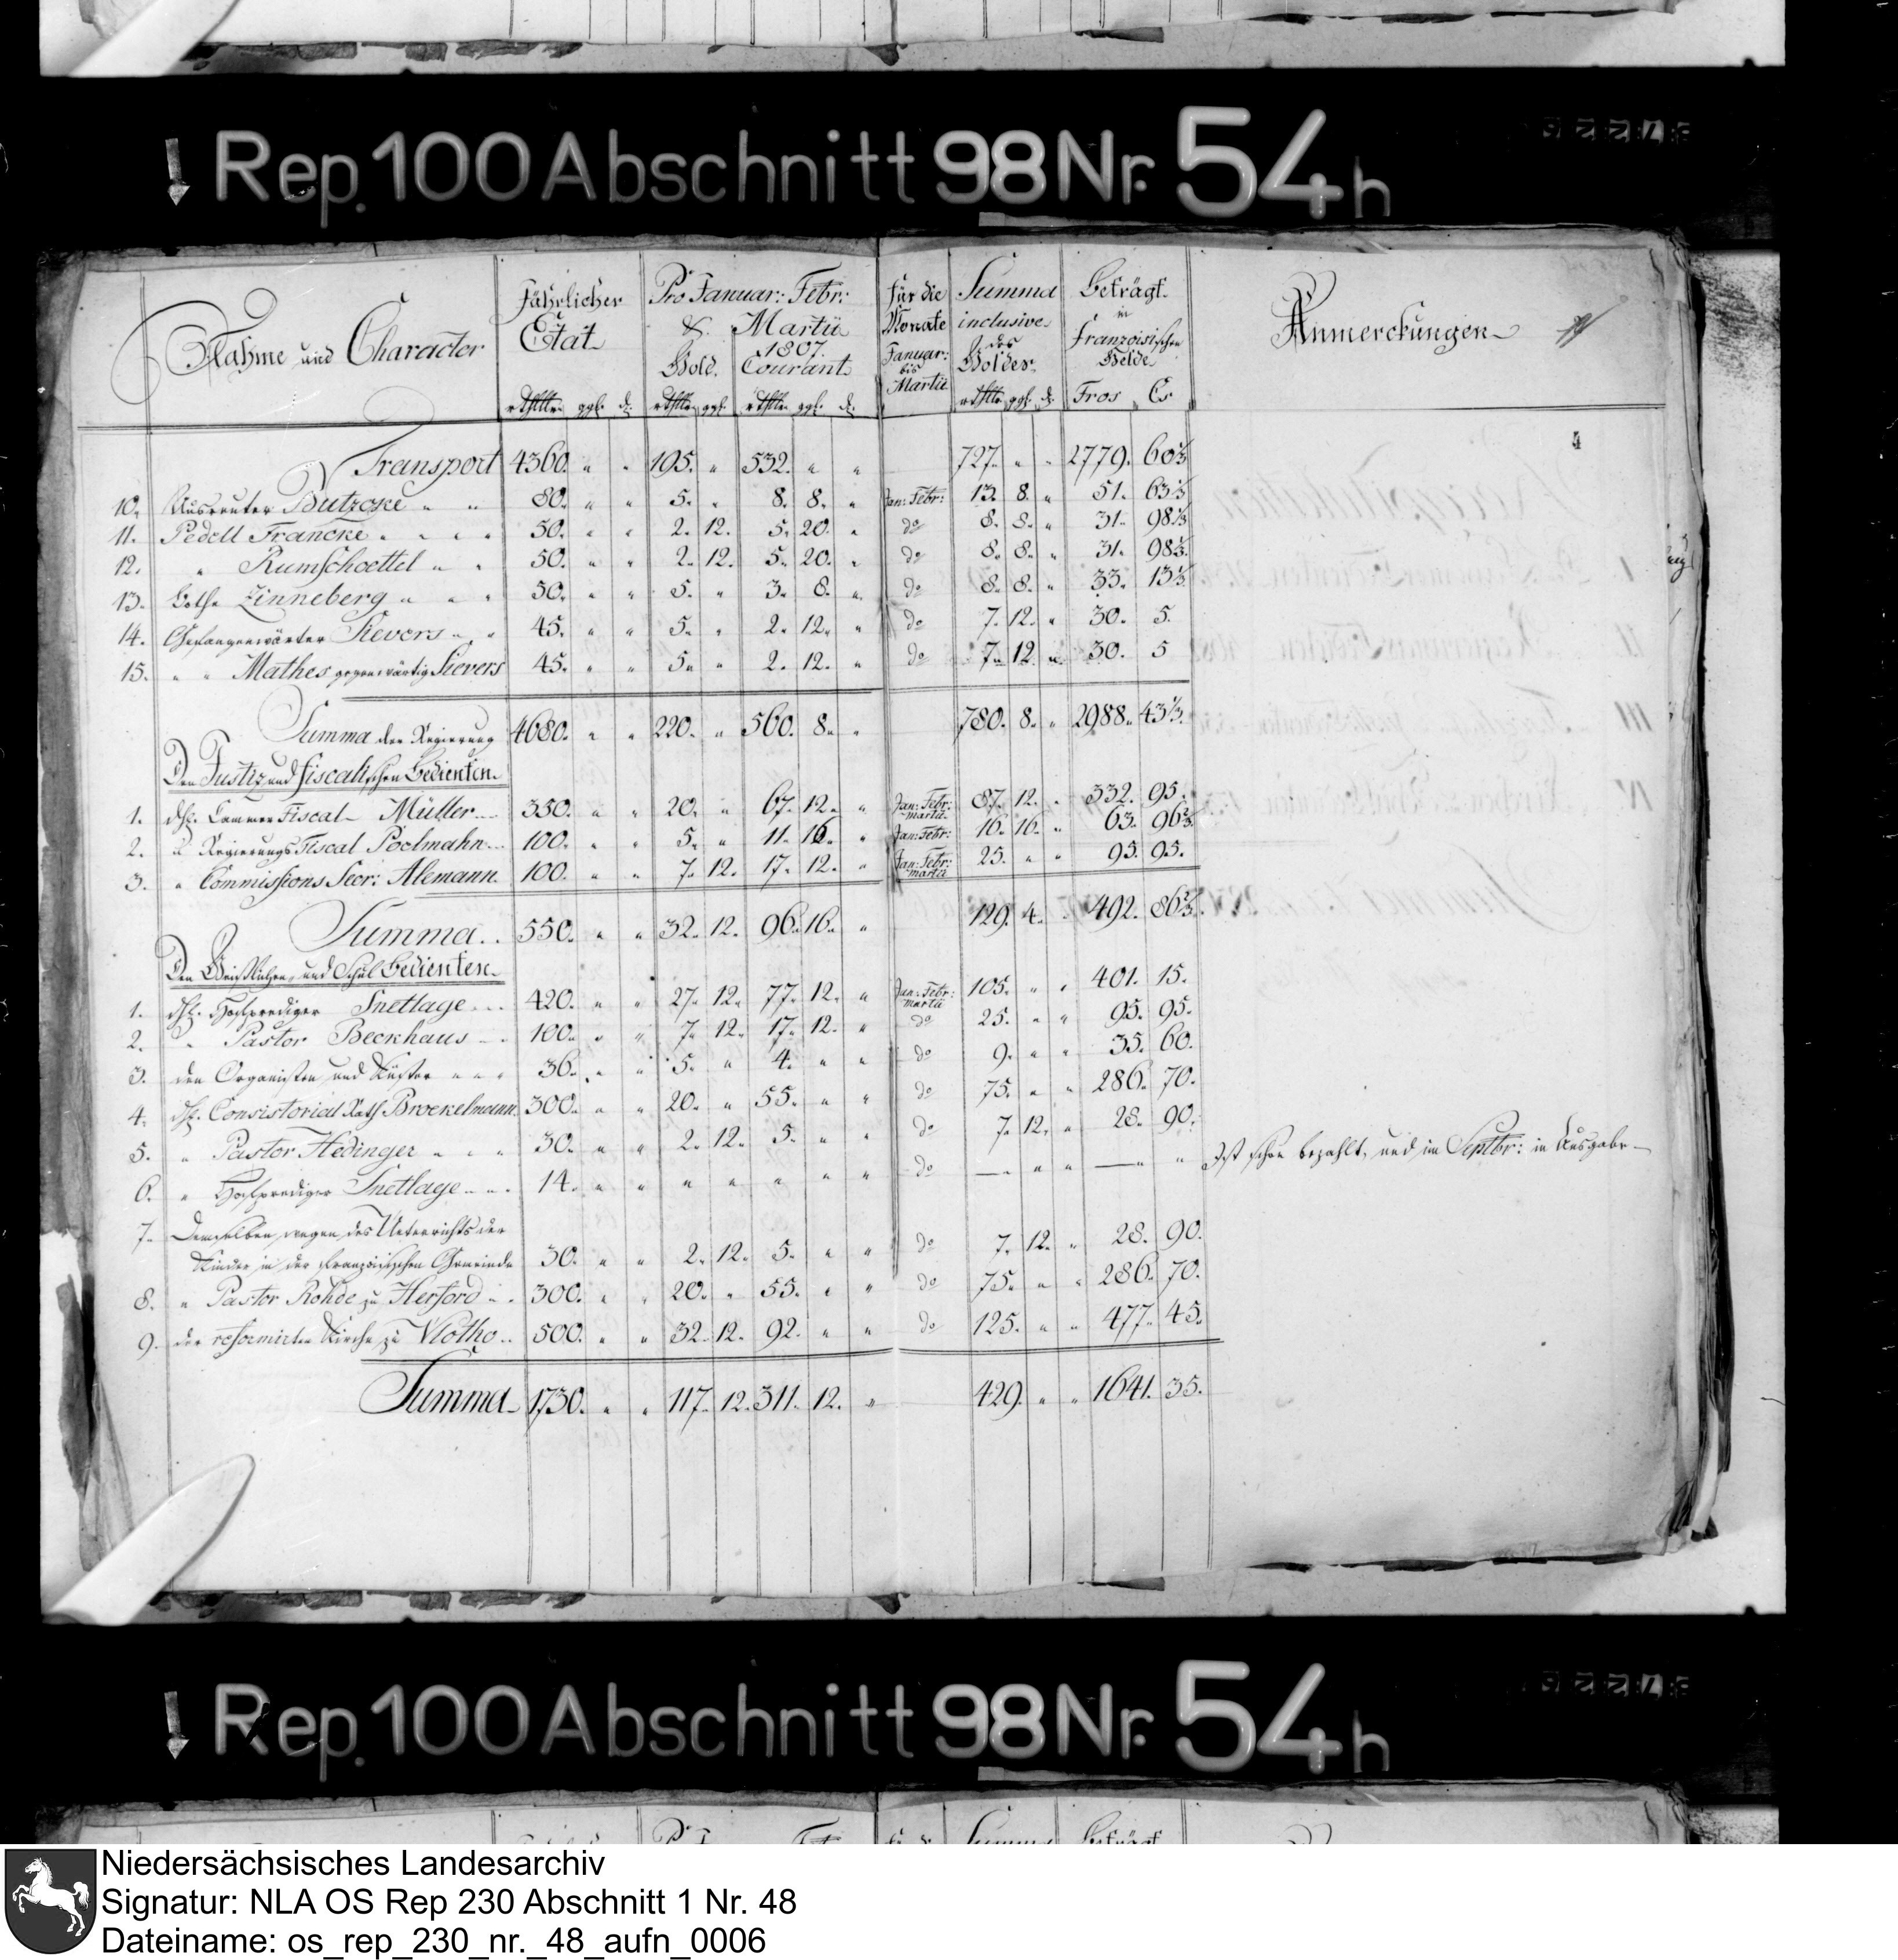 Rep. 100 Abschnitt 98 Nr. 54 h
Nahme und Character
Jährlicher Etat
Pro Januar: Febr: & Martii 1807.
Gold. Courant
für die Monate Januar: bis Martii
Summa inclusive des Goldes
Beträgt in Französischen Gelde
Anmerckungen
rthlr. ggl. d. rthlr. ggl. rthlr. ggl. d. rthlr. ggl. d. Frcs Cs
4
Transport 4360. " " 195. " 532. " " 727. " " 2779. 60⅓
10. Ausreuter Butzcke " " 80. " " 5. " 8. 8. " Jan: Febr: 13. 8. " 51. 63⅓
11. Pedell Francke " " " " 50. " " 2. 12. 5. 20. " do 8. 8. " 31. 98⅓
12. " Rumschoettel " " 50. " " 2. 12. 5. 20. " do 8. 8. " 31. 98⅓.
13. Bothe Zinneberg " " " 50. " " 5. " 3. 8. " do 8. 8. " 33. 13⅓
14. Gefangenwärter Sievers " " 45. " " 5. " 2. 12. " do 7. 12. " 30. 5.
15. " " Mathes gegenwärtig Sievers 45. " " 5. " 2. 12. " do 7. 12. " 30. 5
Summa der Regierung 4680. " " 220. " 560. 8. " 780. 8. " 2988. 43⅓.
Den Justiz und fiscalischen Bedienten.
1. dH. Cammer Fiscal Müller 350. " " 20. " 67. 12. " Jan: Febr: Martii 87. 12. " 332. 95.
2. " Regierungs Fiscal Poelmahn 100. " " 5. " 11. 16. " Jan: Febr: 16. 16. " 63. 96⅔.
3. " Commissions Secr: Alemann. 100. " " 7. 12. 17. 12. " Jan: Febr: Martii 25. " " 95. 95.
Summa. 550. " " 32. 12. 96. 16. " 129. 4. " 492. 86⅔.
Den Geistlichen und Schul Bedienten.
1. dH. Hofprediger Snetlage 420. " " 27. 12. 77. 12. " Jan: Febr: Martii 105. " " 401. 15.
2. " Pastor Beckhaus 100. " " 7. 12. 17. 12. " do 25. " " 95. 95.
3. den Organisten und Küster " " " 36. " " 5. " 4. " " do 9. " " 35. 60.
4. dH. Consistorial Rath Brockelmann 300. " " 20. " 55. " " do 75. " " 286. 70.
5. " Pastor Hedinger " " " 30. " " 2. 12. 5. " " do 7. 12. " 28. 90.
6. " Hofprediger Snetlage 14. " " " " " " " do —. " " —. " Ist schon bezahlt, und im Septbr: in Ausgabe
7. Demselben wegen des Unterrichts der
Kinder in der französischen Gemeinde 30. " " 2. 12. 5. " " do 7. 12. " 28. 90.
8. " Pastor Rohde zu Herford 300. " " 20. " 55. " " do 75. " " 286. 70.
9. der reformirten Kirche zu Vlotho 500. " " 32. 12. 92. " " do 125. " " 477. 45.
Summa 1730. " " 117. 12. 311. 12. " 429. " " 1641. 35.
Rep. 100 Abschnitt 98 Nr. 54 h
Niedersächsisches Landesarchiv
Signatur: NLA OS Rep 230 Abschnitt 1 Nr. 48
Dateiname: os_rep_230_nr._48_aufn_0006